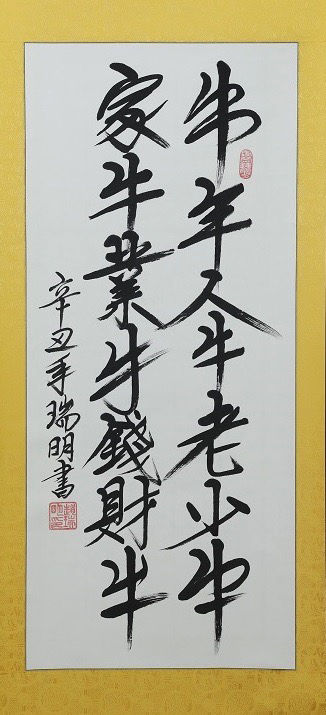 牛年人牛老小牛
家牛業牛錢財牛
辛丑年瑞明書